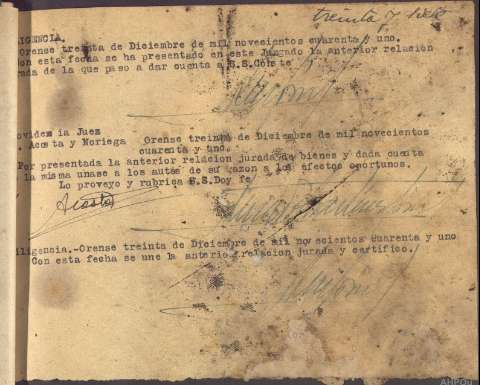 treinta y siete
LIGENCIA.
Orense treinta de Diciembre de mil novecientos cuarenta y uno.
Con esta fecha se ha presentado en este Juzgado la anterior relación
rada de la que paso a dar cuenta a S.S.
ovidencia Juez
Acosta y Noriega Orense treinta de Diciembre de mil novecientos
cuarenta y uno.
Por presentada la anterior relacion jurada de bienes y dada cuenta
la misma unase a los autos de su razon a los efectos oportunos.
Lo proveyo y rubrica S.S. Doy fe
Acosta
iligencia.-Orense treinta de Diciembre de mil novecientos cuarenta y uno
Con esta fecha se une la anterior relacion jurada y certifico.
AHPOu